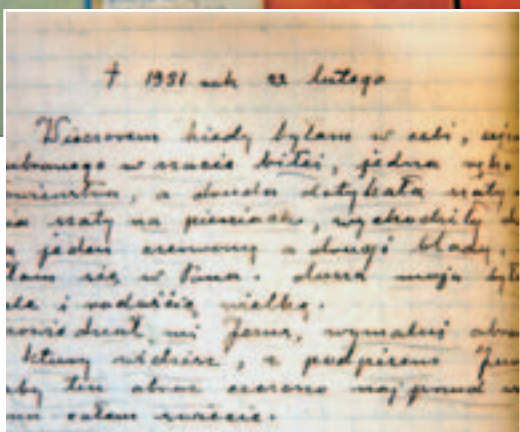 † 1931 rok 22 lutego
Wieczorem kiedy byłam w celi, ujrz
ubranego w szacie białej, jedna ręka
wieństwa, a druga dotykała szaty
ia szaty na piersiach, wychodziły d
jeden czerwony a drugi blady.
łam się w Pana. dusza moja była
ale i radością wielką.
powiedział mi Jezus, wymaluj obra
który widzisz, z podpisem Jezu
aby ten obraz czczono najpierw w
na całem świecie.